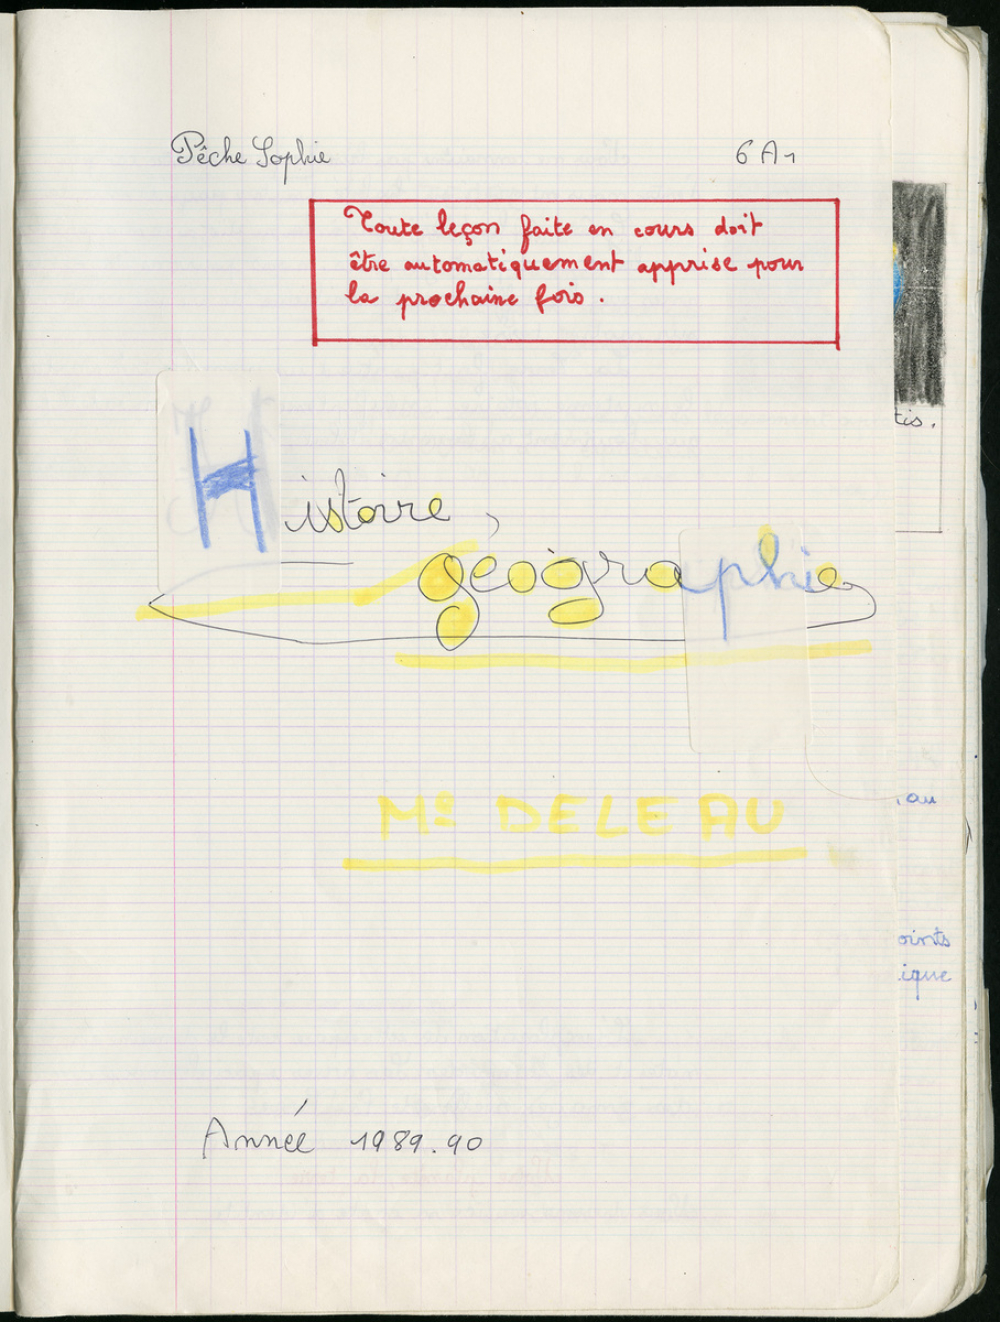 Pêche Sophie 6A1
Toute leçon faite en cours doit
être automatiquement apprise pour
la prochaine fois.
tis.
Histoire,
géographie
, au
Mr DELEAU
oints
ique
Année 1989.90